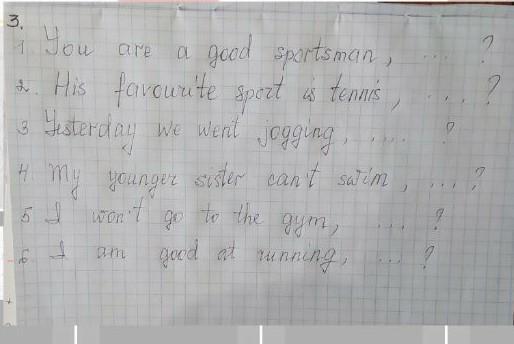 3.
1. You are a good sportsman, ... ?
2. His favourite sport is tennis, ... ?
3 Yesterday we went jogging, .... ?
4. My younger sister can't swim, ... ?
5 I won't go to the gym, ... ?
6 I am good at running, ... ?